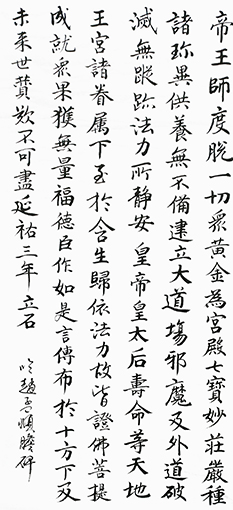 帝王師度脫一切眾黃金為宮殿七寶妙莊嚴種
諸珎異供養無不備建立大道場邪魔及外道破
滅無蹤跡法力所靜安皇帝皇太后壽命等天地
王宮諸眷属下至於含生歸依法力故皆證佛菩提
成就眾果獲無量福德臣作如是言傳布於十方下及
未来世賛歎不可盡延祐三年立石
臨趙孟頫膽碑